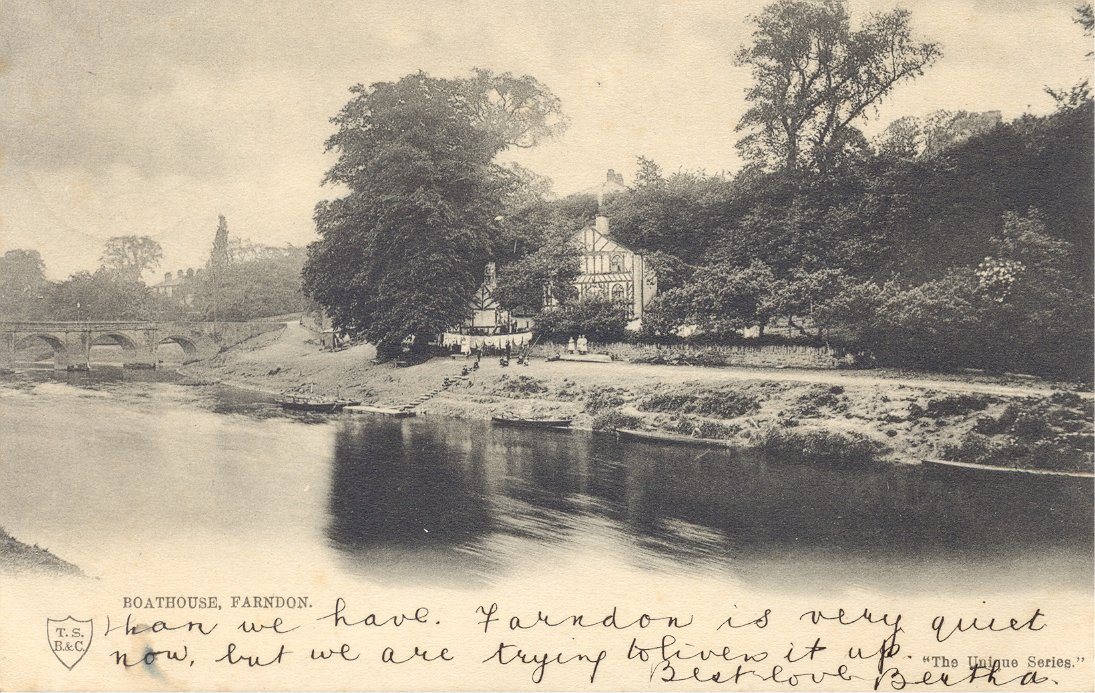 BOATHOUSE, FARNDON.
T. S.
B. & C.
than we have. Farndon is very quiet
now, but we are trying to liven it up.
"The Unique Series."
Best love Bertha.